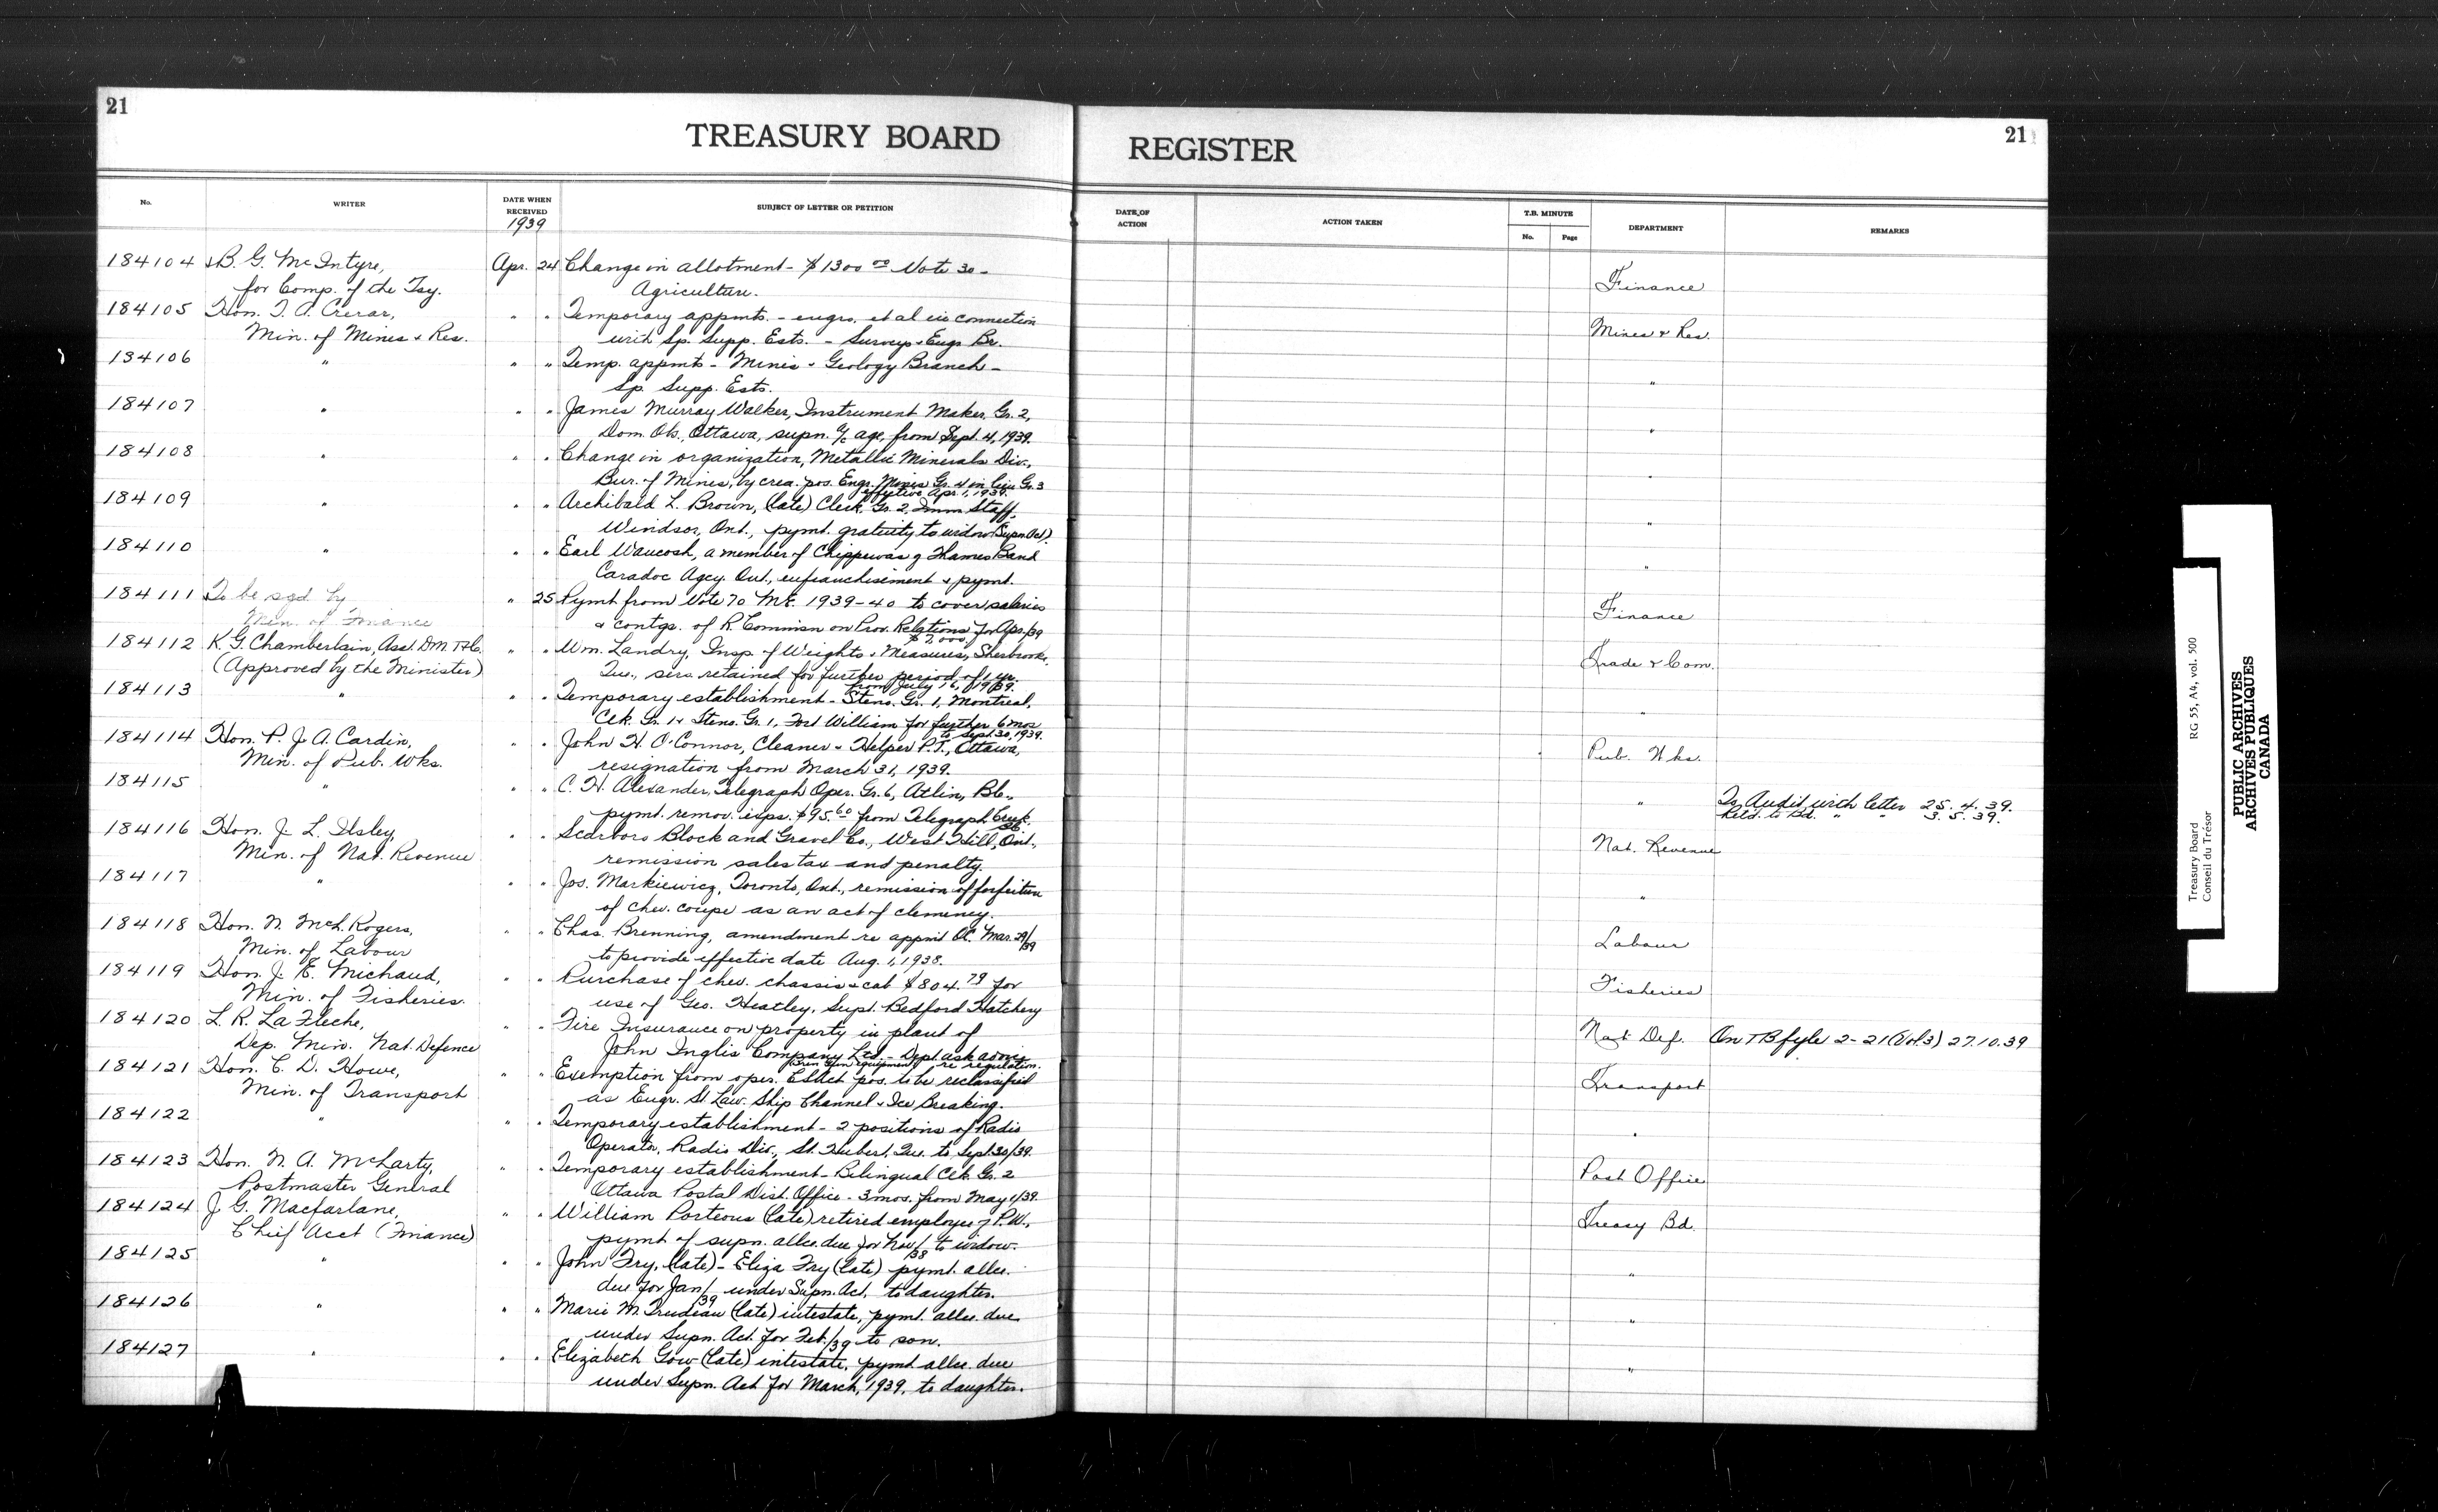 21
TREASURY BOARD
REGISTER
21
No.
WRITER
DATE WHEN RECEIVED
1939
SUBJECT OF LETTER OR PETITION
DATE OF ACTION
ACTION TAKEN
T.B. MINUTE
No.
Page
DEPARTMENT
REMARKS
184104 B. G. McIntyre, Apr. 24 Change in allotment - $1300 00 Vote 30 - Finance
for Comp. of the Tsy. Agriculture.
184105 Hon. T. A. Crerar, " " Temporary appmts. - engrs. et al in connection Mines & Res.
Min. of Mines & Res. with Sp. Supp. Ests. - Surveys & Engr. Br.
184106 " " " Temp. appmts - Mines & Geology Branch - "
Sp. Supp. Ests.
184107 " " " James Murray Walker, Instrument Maker, Gr. 2, "
Dom. Obs., Ottawa, supn. a/c age, from Sept. 4, 1939.
184108 " " " Change in organization, Metallic Minerals Div., "
Bur. of Mines, by crea. pos. Engr. Mines Gr. 4 in lieu Gr. 3
effective Apr. 1, 1939.
184109 " " " Archibald L. Brown, (late) Clerk, Gr. 2, Imm Staff, "
Windsor, Ont., pymt. gratuity to widow (Supn. Act).
184110 " " " Earl Waucosh, a member of Chippewas of Thames Band "
Caradoc Agcy. Ont., enfranchisement & pymt.
184111 To be sgd by " 25 Pymt from Vote 70 M.E. 1939-40 to cover salaries Finance
Min. of Finance & contgs. of R. Commisn on Prov. Relations for Apr./39
$7,000.
184112 K. G. Chamberlain, Asst. D.M. T&C. " " Wm. Landry, Insp. of Weights & Measures, Sherbrooke, Trade & Com.
(Approved by the Minister) Que., sers. retained for further period of 1 yr.
from July 16, 1939.
184113 " " " Temporary establishment - Steno. Gr. 1, Montreal, "
Clk. Gr. 1 & Steno. Gr. 1, Fort William for further 6 mos
to Sept. 30, 1939.
184114 Hon. P. J. A. Cardin, " " John H. O'Connor, Cleaner & Helper P.T., Ottawa, Pub. Wks.
Min. of Pub. Wks. resignation from March 31, 1939.
184115 " " " C. H. Alexander, Telegraph Oper. Gr. 6, Atlin, BC., " To Audit with letter 25. 4. 39.
pymt. remov. exps. $95.60 from Telegraph Creek. Retd. to Bd. " " 3. 5. 39.
BC.
184116 Hon. J. L. Ilsley, " " Scarboro Block and Gravel Co., West Hill, Ont., Nat. Revenue
Min. of Nat. Revenue remission sales tax and penalty.
184117 " " " Jos. Markiewicz, Toronto, Ont., remission of forfeiture "
of Chev. coupe as an act of clemency.
184118 Hon. N. McL. Rogers, " " Chas. Brenning, amendment re appmt OC. Mar. 29/39 Labour
Min. of Labour to provide effective date Aug. 1, 1938.
184119 Hon. J. E. Michaud, " " Purchase of chev. chassis & cab $804.79 for Fisheries
Min. of Fisheries. use of Geo. Heatley, Supt. Bedford Hatchery
184120 L. R. La Fleche, " " Fire Insurance on property in plant of Nat. Def. On TB fyle 2-21 (Vol. 3) 27.10.39
Dep. Min. Nat. Defence John Inglis Company Ltd. - Dept. ask advice
Bren Gun equipment re regulation.
184121 Hon. C. D. Howe, " " Exemption from oper. CS Act pos. to be reclassified Transport
Min. of Transport as Engr. St. Law. Ship Channel & Ice Breaking.
184122 " " " Temporary establishment - 2 positions of Radio "
Operator, Radio Div., St. Hubert, Que. to Sept. 30/39.
184123 Hon. N. A. McLarty, " " Temporary establishment - Bilingual Clk. Gr. 2 Post Office
Postmaster General Ottawa Postal Dist. Office - 3 mos. from May 1/39.
184124 J. G. Macfarlane, " " William Porteous (late) retired employee of P.W., Treasy Bd.
Chief Acct (Finance) pymt of supn. allce. due for Nov/38 to widow.
184125 " " " John Fry, (late) - Eliza Fry (late) pymt. allce. "
due for Jan/39 under Supn. Act, to daughter.
184126 " " " Marie M. Trudeau (late) intestate, pymt. allce. due "
under Supn. Act for Feb./39 to son.
184127 " " " Elizabeth Gow (late) intestate, pymt. allce. due "
under Supn. Act for March, 1939, to daughter.
Treasury Board
Conseil du Trésor
RG 55, A4, vol. 500
PUBLIC ARCHIVES
ARCHIVES PUBLIQUES
CANADA